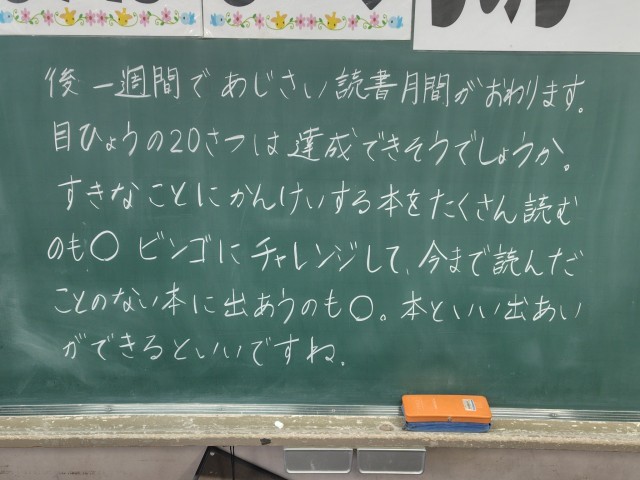 後一週間であじさい読書月間がおわります。
目ひょうの20さつは達成できそうでしょうか。
すきなことにかんけいする本をたくさん読む
のも○ ビンゴにチャレンジして、今まで読んだ
ことのない本に出あうのも○。本といい出あい
ができるといいですね。